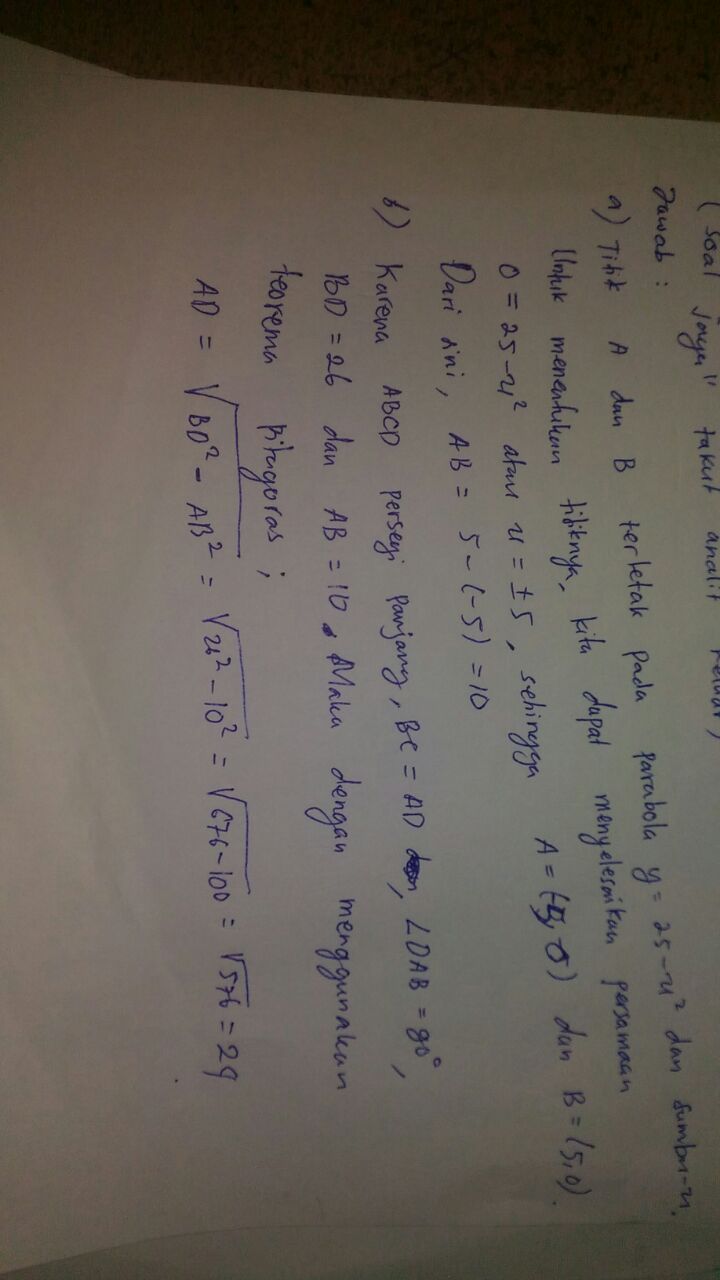 (soal jaga" takut analit keluar)
Jawab :
a) Titik A dan B terletak pada parabola y = 25-x² dan sumbu-x.
Untuk menentukan titiknya, kita dapat menyelesaikan persamaan
0 = 25-x² atau x = ±5, sehingga A = (-5, 0) dan B = (5,0).
Dari sini, AB = 5-(-5) = 10
b) Karena ABCD persegi panjang, BC = AD, ∠DAB = 90°,
BD = 26 dan AB = 10. Maka dengan menggunakan
teorema Pitagoras ;
AD = √(BD² - AB²) = √(26² - 10²) = √(676-100) = √576 = 24